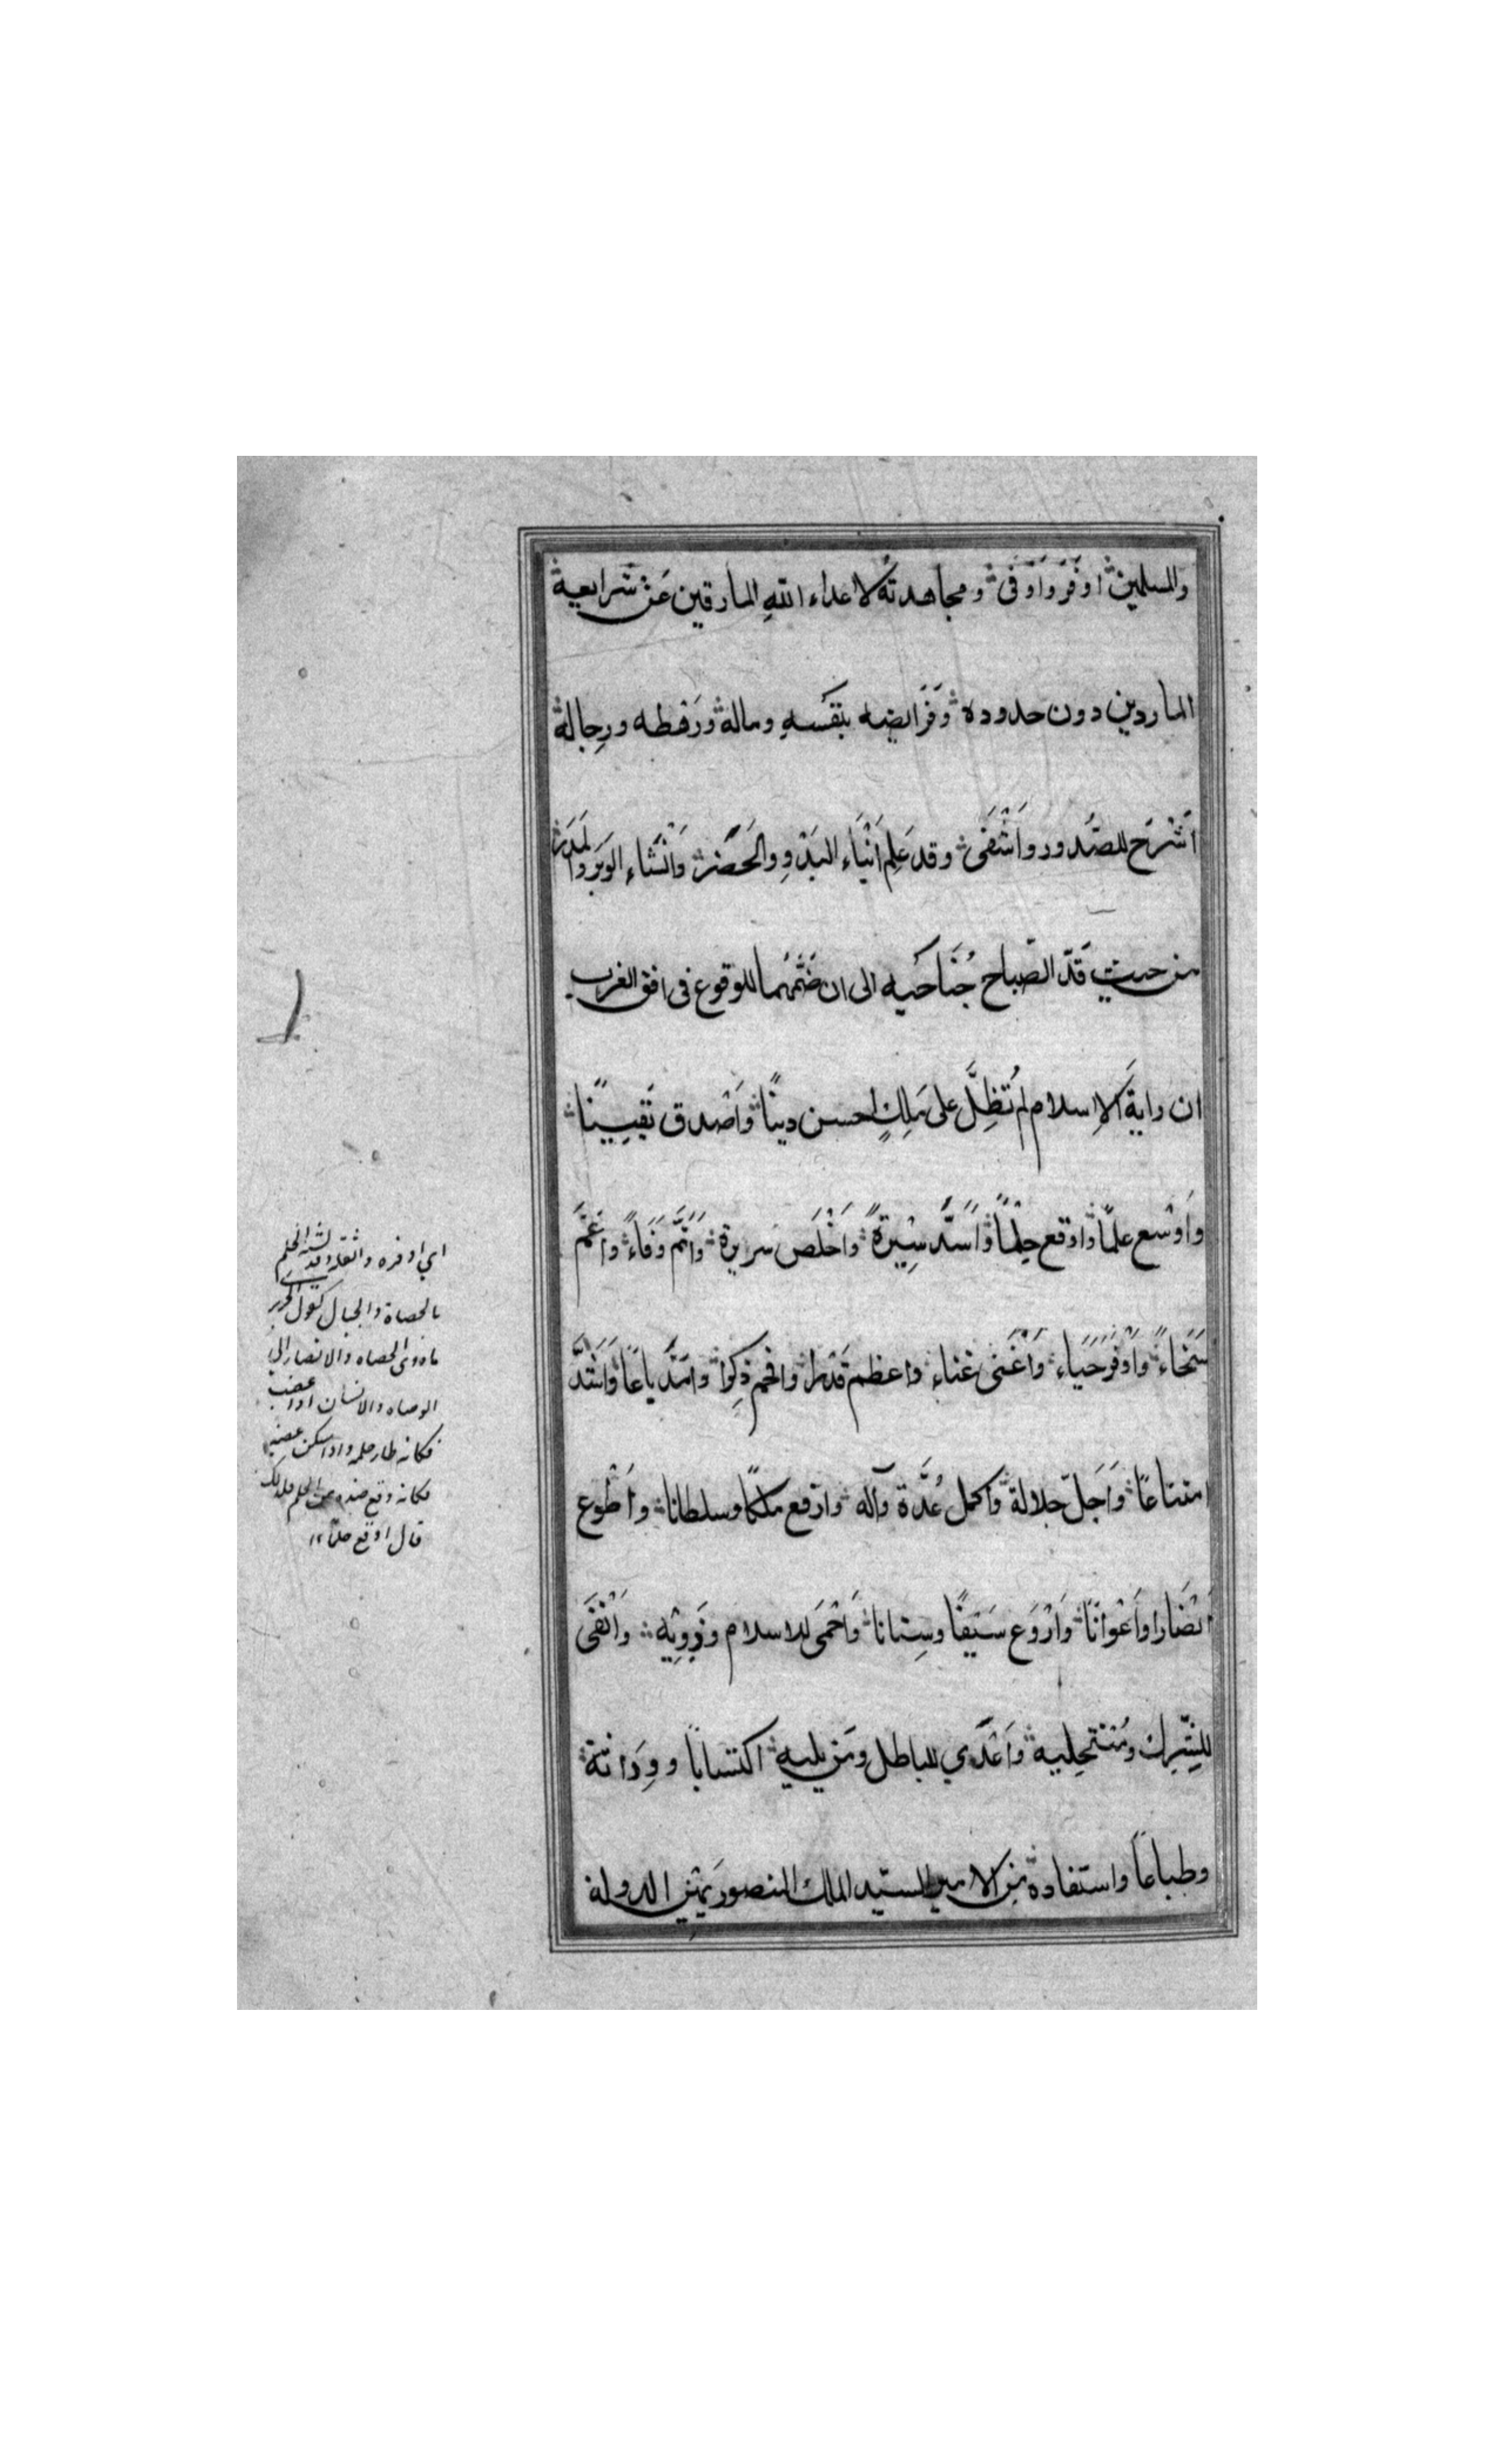 والمسلمين اوفَرَ وَاَوفىٰ ومجاهدتَه لاعداء اللهِ المارقين عَن شَرايعِه
الماردين دون حدوده وَفَرَايضه بنَفسهِ وماله ورَهطه ورِجاله
اَشرَح للصُّدور وَاَشفَى وقد عَلِم اَبنَاء البَدوِ والحَضَر وَانشَاءِ الوَبَر والمَدَر
من حيث قَدّ الصّباح جُنَاحَيه الى ان ضَمَّهُما للوقوع فى افق الغرب
ان رايةَ الاِسلام لم تُظِلَّ على مَلِكٍ احسن دينًا وَاَصدق يَقِينًا
وَاَوسع علمًا وَاوقع حِلمًا وَاَسَدّ سِيرةً وَاَخلَص سريرة وَاَتَمّ وَفَاءً وَاَعَمّ
سَخاءً وَاَوفَرَ حَيَاء وَاَغنى غناء واعظم قَدرا وافخم ذِكرا وامَدّ باعًا وَاَشَدّ
امتناعًا وَاَجَلّ جلالة وَاكمل عُدَّة وَآله وارفع ملكًا وسلطانا وَاَطوع
اَنصَارا وَاَعوانًا وَاَروَع سَيفًا وسِنانا وَاَحمَى للاسلام وَذَوِيه وَاَنفَى
للشِّرك ومُنتَحِليه وَاَعدَي للباطل ومَن يليه اكتسابًا ووِرَاثة
وطِباعًا واستفادة مِن الامير السيّد الملك المنصور يَمين الدولة
اي اوفره واثقله وقد يشبه الحلم
بالحصاة والجبال كقول
فكانه طار حلمه واذا سكن غضبه
فكانه وقع
قال اوقع حلمًا ١٢